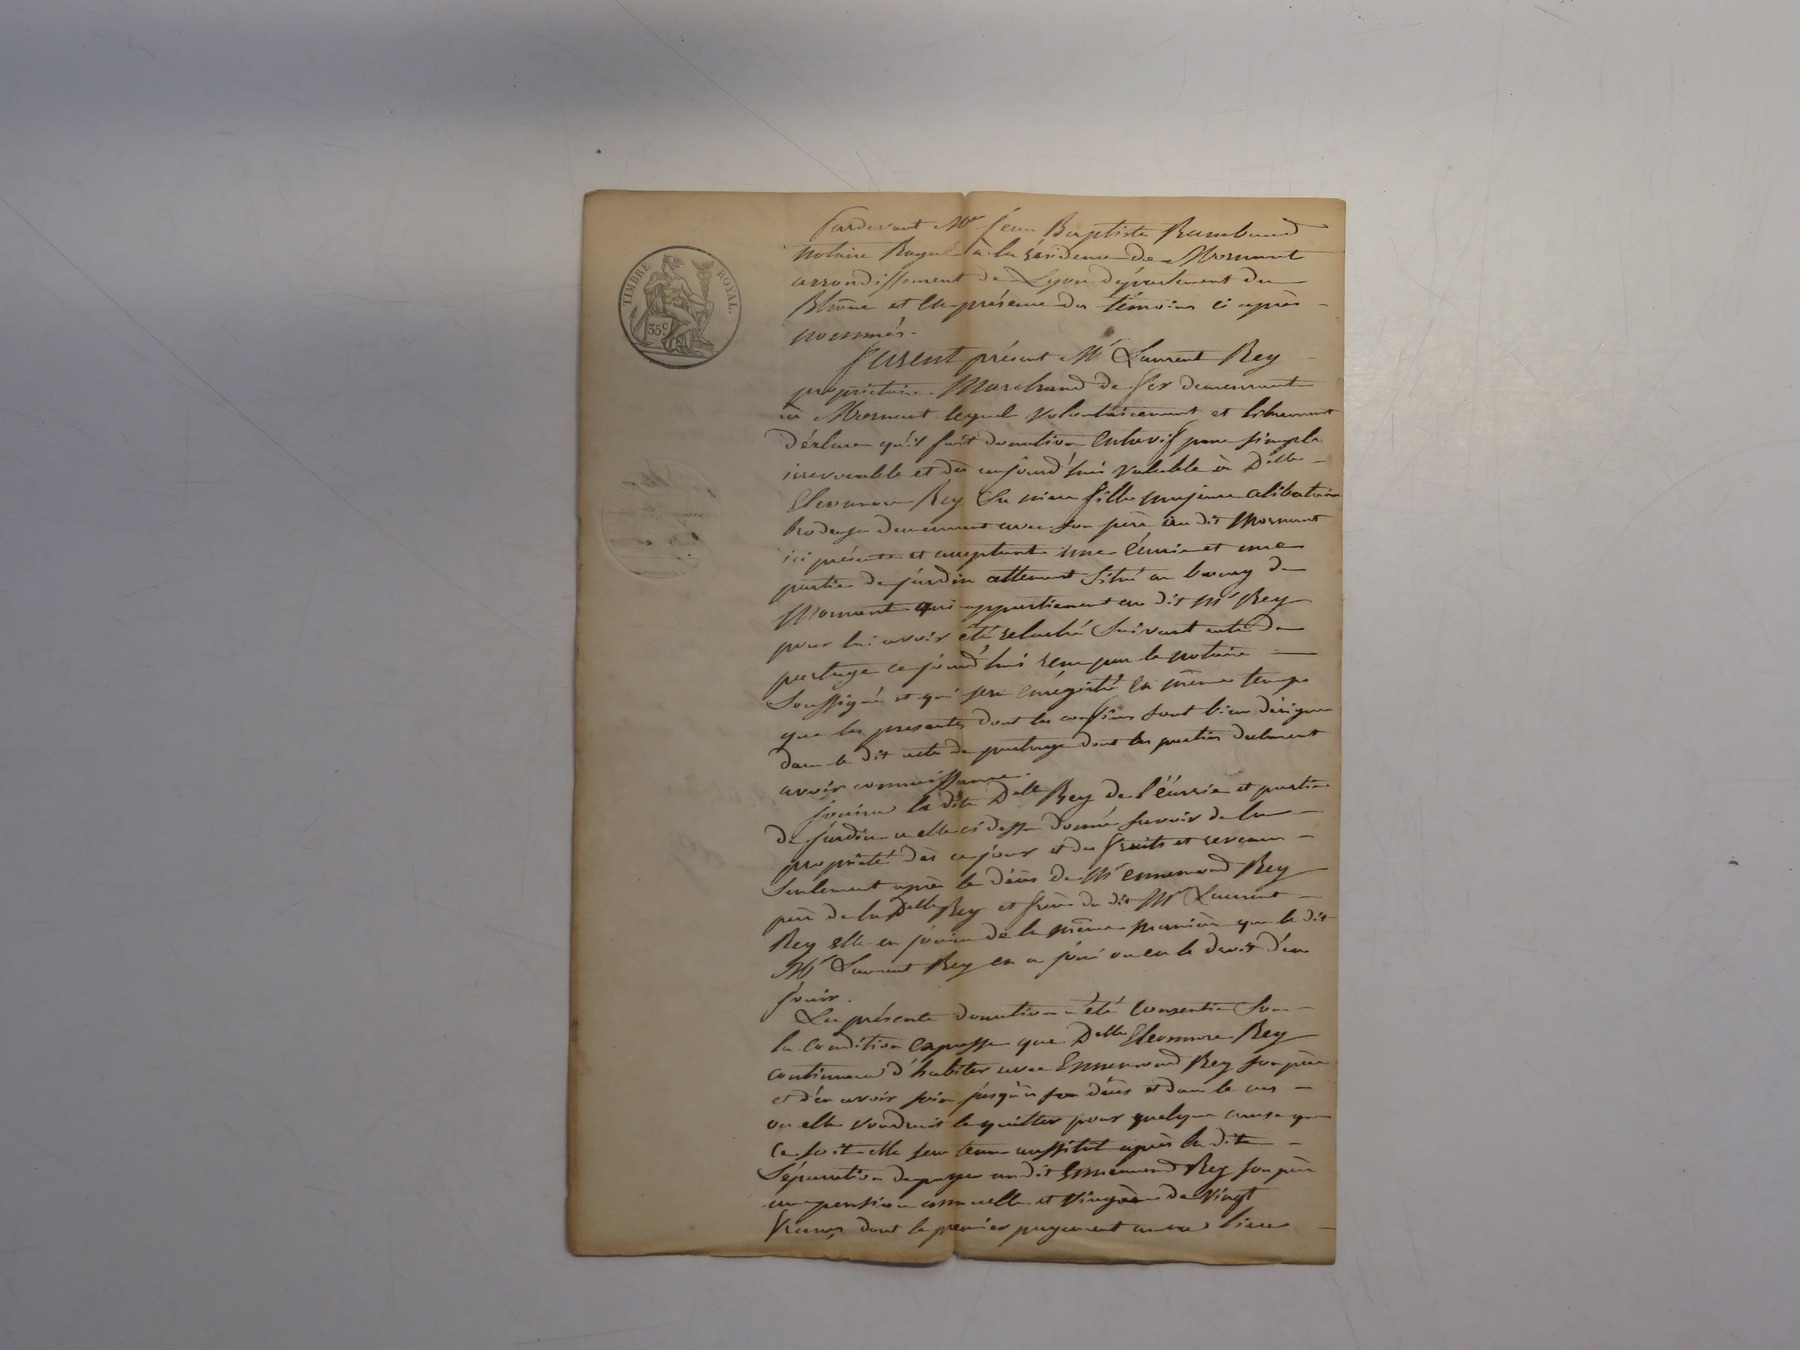 TIMBRE ROYAL
35 c
Pardevant Me Jean Baptiste Rambaud
notaire Royal à la résidence de Mornant
arrondissement de Lyon département du
Rhône et en présence des témoins ci après
nommés.
furent présent Mr Laurent Rey
propriétaire Marchand de fer demeurant
à Mornant lequel volontairement et librement
déclare qu'il fait donation entrevif pure simple
irrevocable et dès aujourd'hui valable à Delle
Eleonore Rey sa niece fille majeure celibataire
brodeuse demeurant avec son père au dit Mornant
ici présente et acceptante une écurie et une
partie de jardin attenant situé au bourg de
Mornant qui appartiennent au dit Mr Rey
pour lui avoir été relaché suivant acte de
partage ce jourd'hui reçu par le notaire
soussigné et qui sera enregistré en même temps
que les presentes dont les confins sont bien désignés
dans le dit acte de partage dont les parties déclarent
avoir connaissance.
Jouira la dite Delle Rey de l'écurie et partie
de jardin a elle ci dessus donné savoir de la
propriété dès ce jour et des fruits et revenus
seulement après le décès de Mr Ennemond Rey
père de la Delle Rey et frère du dit Mr Laurent
Rey elle en jouira de la même manière que le dit
Mr Laurent Rey en a joui ou eu le droit d'en
jouir.
La présente donation a été consentie sous
la condition expresse que Delle Eleonore Rey
continuera d'habiter avec Ennemond Rey son père
et d'en avoir soin jusqu'à son décès et dans le cas
ou elle voudrait le quitter pour quelque cause que
ce soit elle sera tenue aussitot après la dite
séparation de payer au dit Ennemond Rey son père
une pension annuelle et viagère de vingt
francs dont le premier payement aura lieu